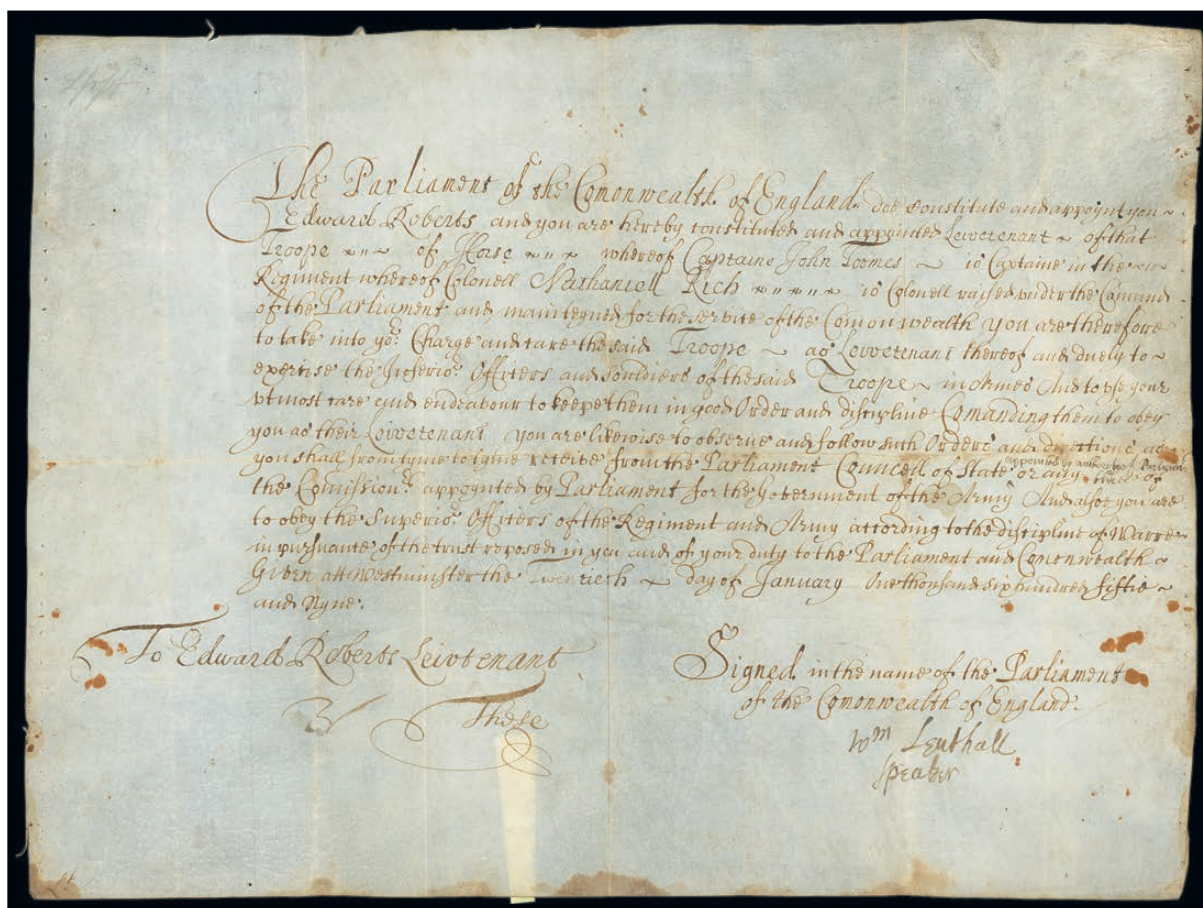 The Parliament of the Comonwealth of England doe constitute and appoynt you
Edward Roberts and you are hereby constituted and appointed Leivetenant of that
Troope of Horse whereof Captaine John Toomes is Captaine in the
Regiment whereof Colonell Nathaniell Rich is Colonell raised under the Comand
of the Parliament and mainteyned for the service of the Comonwealth you are therefore
to take into yor Charge and care the said Troope as Leivetenant thereof and duely to
exercise the Inferior Officers and Souldiers of the said Troope in Armes And to use your
utmost care and endeavour to keepe them in good Order and discipline Comanding them to obey
you as their Leivetenant you are likewise to observe and follow such Orders and directions as
you shall from tyme to tyme receive from the Parliament Councell of State or any
the Comissionrs appoynted by Parliament for the Government of the Army And also you are
to obey the Superior Officers of the Regiment and Army according to the discipline of Warre
in pursuance of the trust reposed in you and of your duty to the Parliament and Comonwealth
Given att Westminster the Twentieth day of January One thousand six hundred fiftie
and Nyne.
To Edward Roberts Leivtenant
These
Signed in the name of the Parliament
of the Comonwealth of England.
Wm Lenthall
Speaker